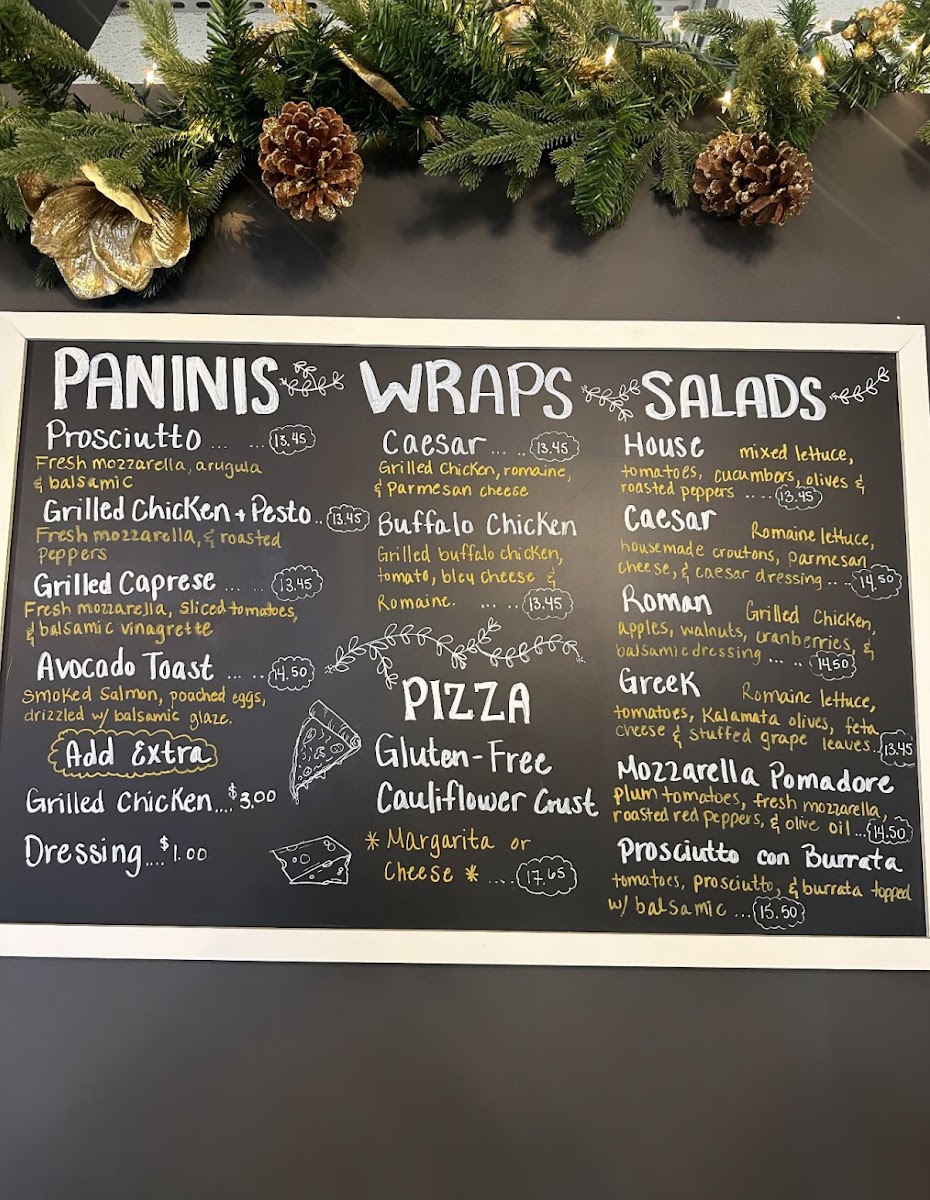 PANINIS
Prosciutto ... ... 13.45
Fresh mozzarella, arugula
& balsamic
Grilled Chicken + Pesto .. 13.45
Fresh mozzarella, & roasted
peppers
Grilled Caprese ... .. 13.45
Fresh mozzarella, Sliced tomatoes,
& balsamic vinagrette
Avocado Toast ... .. 14.50
Smoked Salmon, poached eggs,
drizzled w/ balsamic glaze.
Add Extra
Grilled Chicken....$3.00
Dressing....$1.00
WRAPS
Caesar ... .. 13.45
Grilled Chicken, romaine,
& Parmesan cheese
Buffalo Chicken
Grilled buffalo chicken,
tomato, bleu cheese &
Romaine. ... .. 13.45
PIZZA
Gluten-Free
Cauliflower Crust
* Margarita or
Cheese * .... 17.65
SALADS
House mixed lettuce,
tomatoes, cucumbers, olives &
roasted peppers .. .. 13.45
Caesar Romaine lettuce,
housemade croutons, parmesan
cheese, & caesar dressing .. .. 14.50
Roman Grilled Chicken,
apples, walnuts, cranberries, &
balsamic dressing ... .. 14.50
Greek Romaine lettuce,
tomatoes, Kalamata olives, feta
cheese & stuffed grape leaves.. 13.45
Mozzarella Pomadore
Plum tomatoes, fresh mozzarella,
roasted red peppers, & olive oil ... 14.50
Prosciutto con Burrata
tomatoes, prosciutto, & burrata topped
w/ balsamic ... 15.50